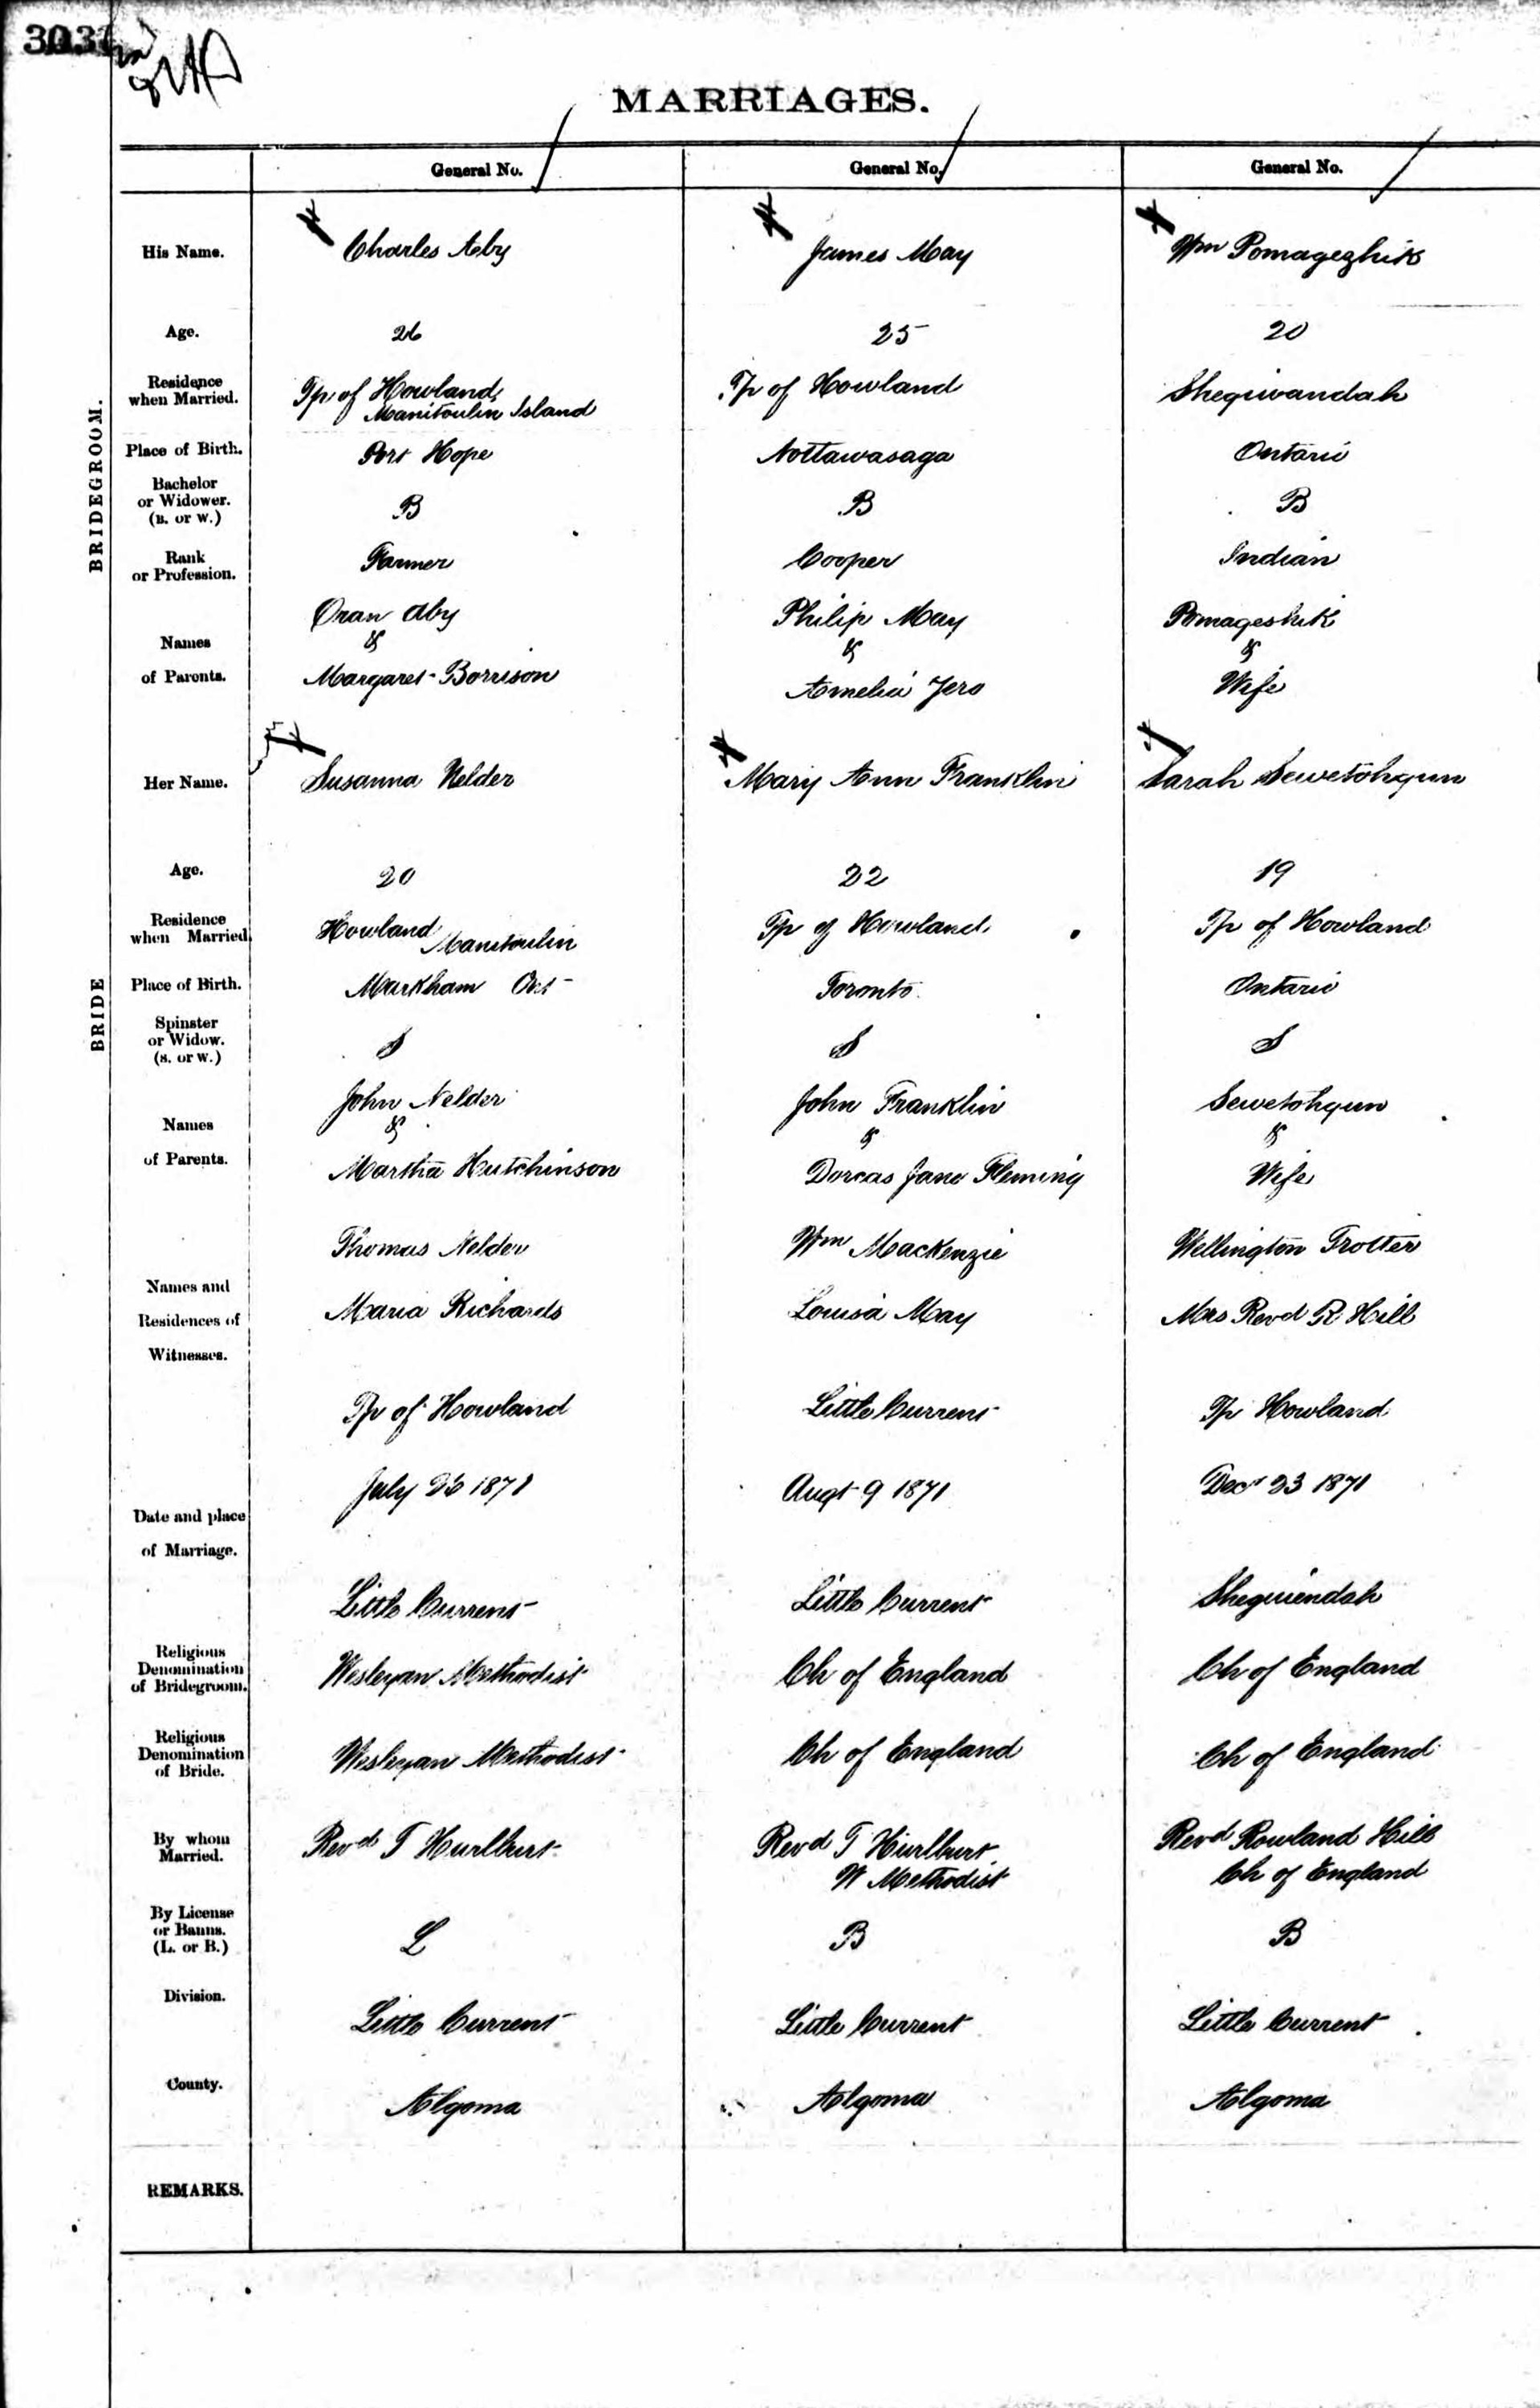 MARRIAGES.
General No. General No. General No.
His Name. Charles Aeby James May Wm Pomagezhik
Age. 26 25 20
Residence when Married. Tp of Howland, Manitoulin Island Tp of Howland Sheguiandah
Place of Birth. Port Hope Nottawasaga Ontario
Bachelor or Widower. (B. or W.) B B B
Rank or Profession. Farmer Cooper Indian
BRIDEGROOM.
Names of Parents. Oran Aby & Margaret Borrison Philip May & Amelia Jero Pomageshik & Wife
Her Name. Susanna Nelder Mary Ann Franklin Sarah Sewetohgun
Age. 20 22 19
Residence when Married. Howland Manitoulin Tp of Howland Tp of Howland
Place of Birth. Markham Ont Toronto Ontario
BRIDE
Spinster or Widow. (S. or W.) S S S
Names of Parents. John Nelder & Martha Hutchinson John Franklin & Dorcas Jane Fleming Sewetohgun & Wife
Names and Residences of Witnesses. Thomas Nelder Wm Mackenzie Wellington Trotter
Maria Richards Louisa May Mrs Revd R Hill
Tp of Howland Little Current Tp Howland
Date and place of Marriage. July 26 1871 Augt 9 1871 Decr 23 1871
Little Current Little Current Sheguiendah
Religious Denomination of Bridegroom. Wesleyan Methodist Ch of England Ch of England
Religious Denomination of Bride. Wesleyan Methodist Ch of England Ch of England
By whom Married. Revd T Hurlburt Revd T Hurlburt W Methodist Revd Rowland Hill Ch of England
By License or Banns. (L. or B.) L B B
Division. Little Current Little Current Little Current
County. Algoma Algoma Algoma
REMARKS.